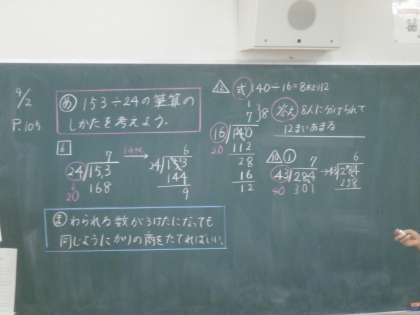 9/2
P.105
め 153÷24の筆算の
しかたを考えよう。
6
7
24)153
168
20
6
24)153
144
9
ま わられる数が3けたになっても
同じようにかりの商をたてればいい。
式 140÷16=8あまり12
答え 8人に分けられて
12まいあまる
1
7
}8
16)140
20
112
28
16
12
10 1
7
43)284
40
301
6
43)284
258